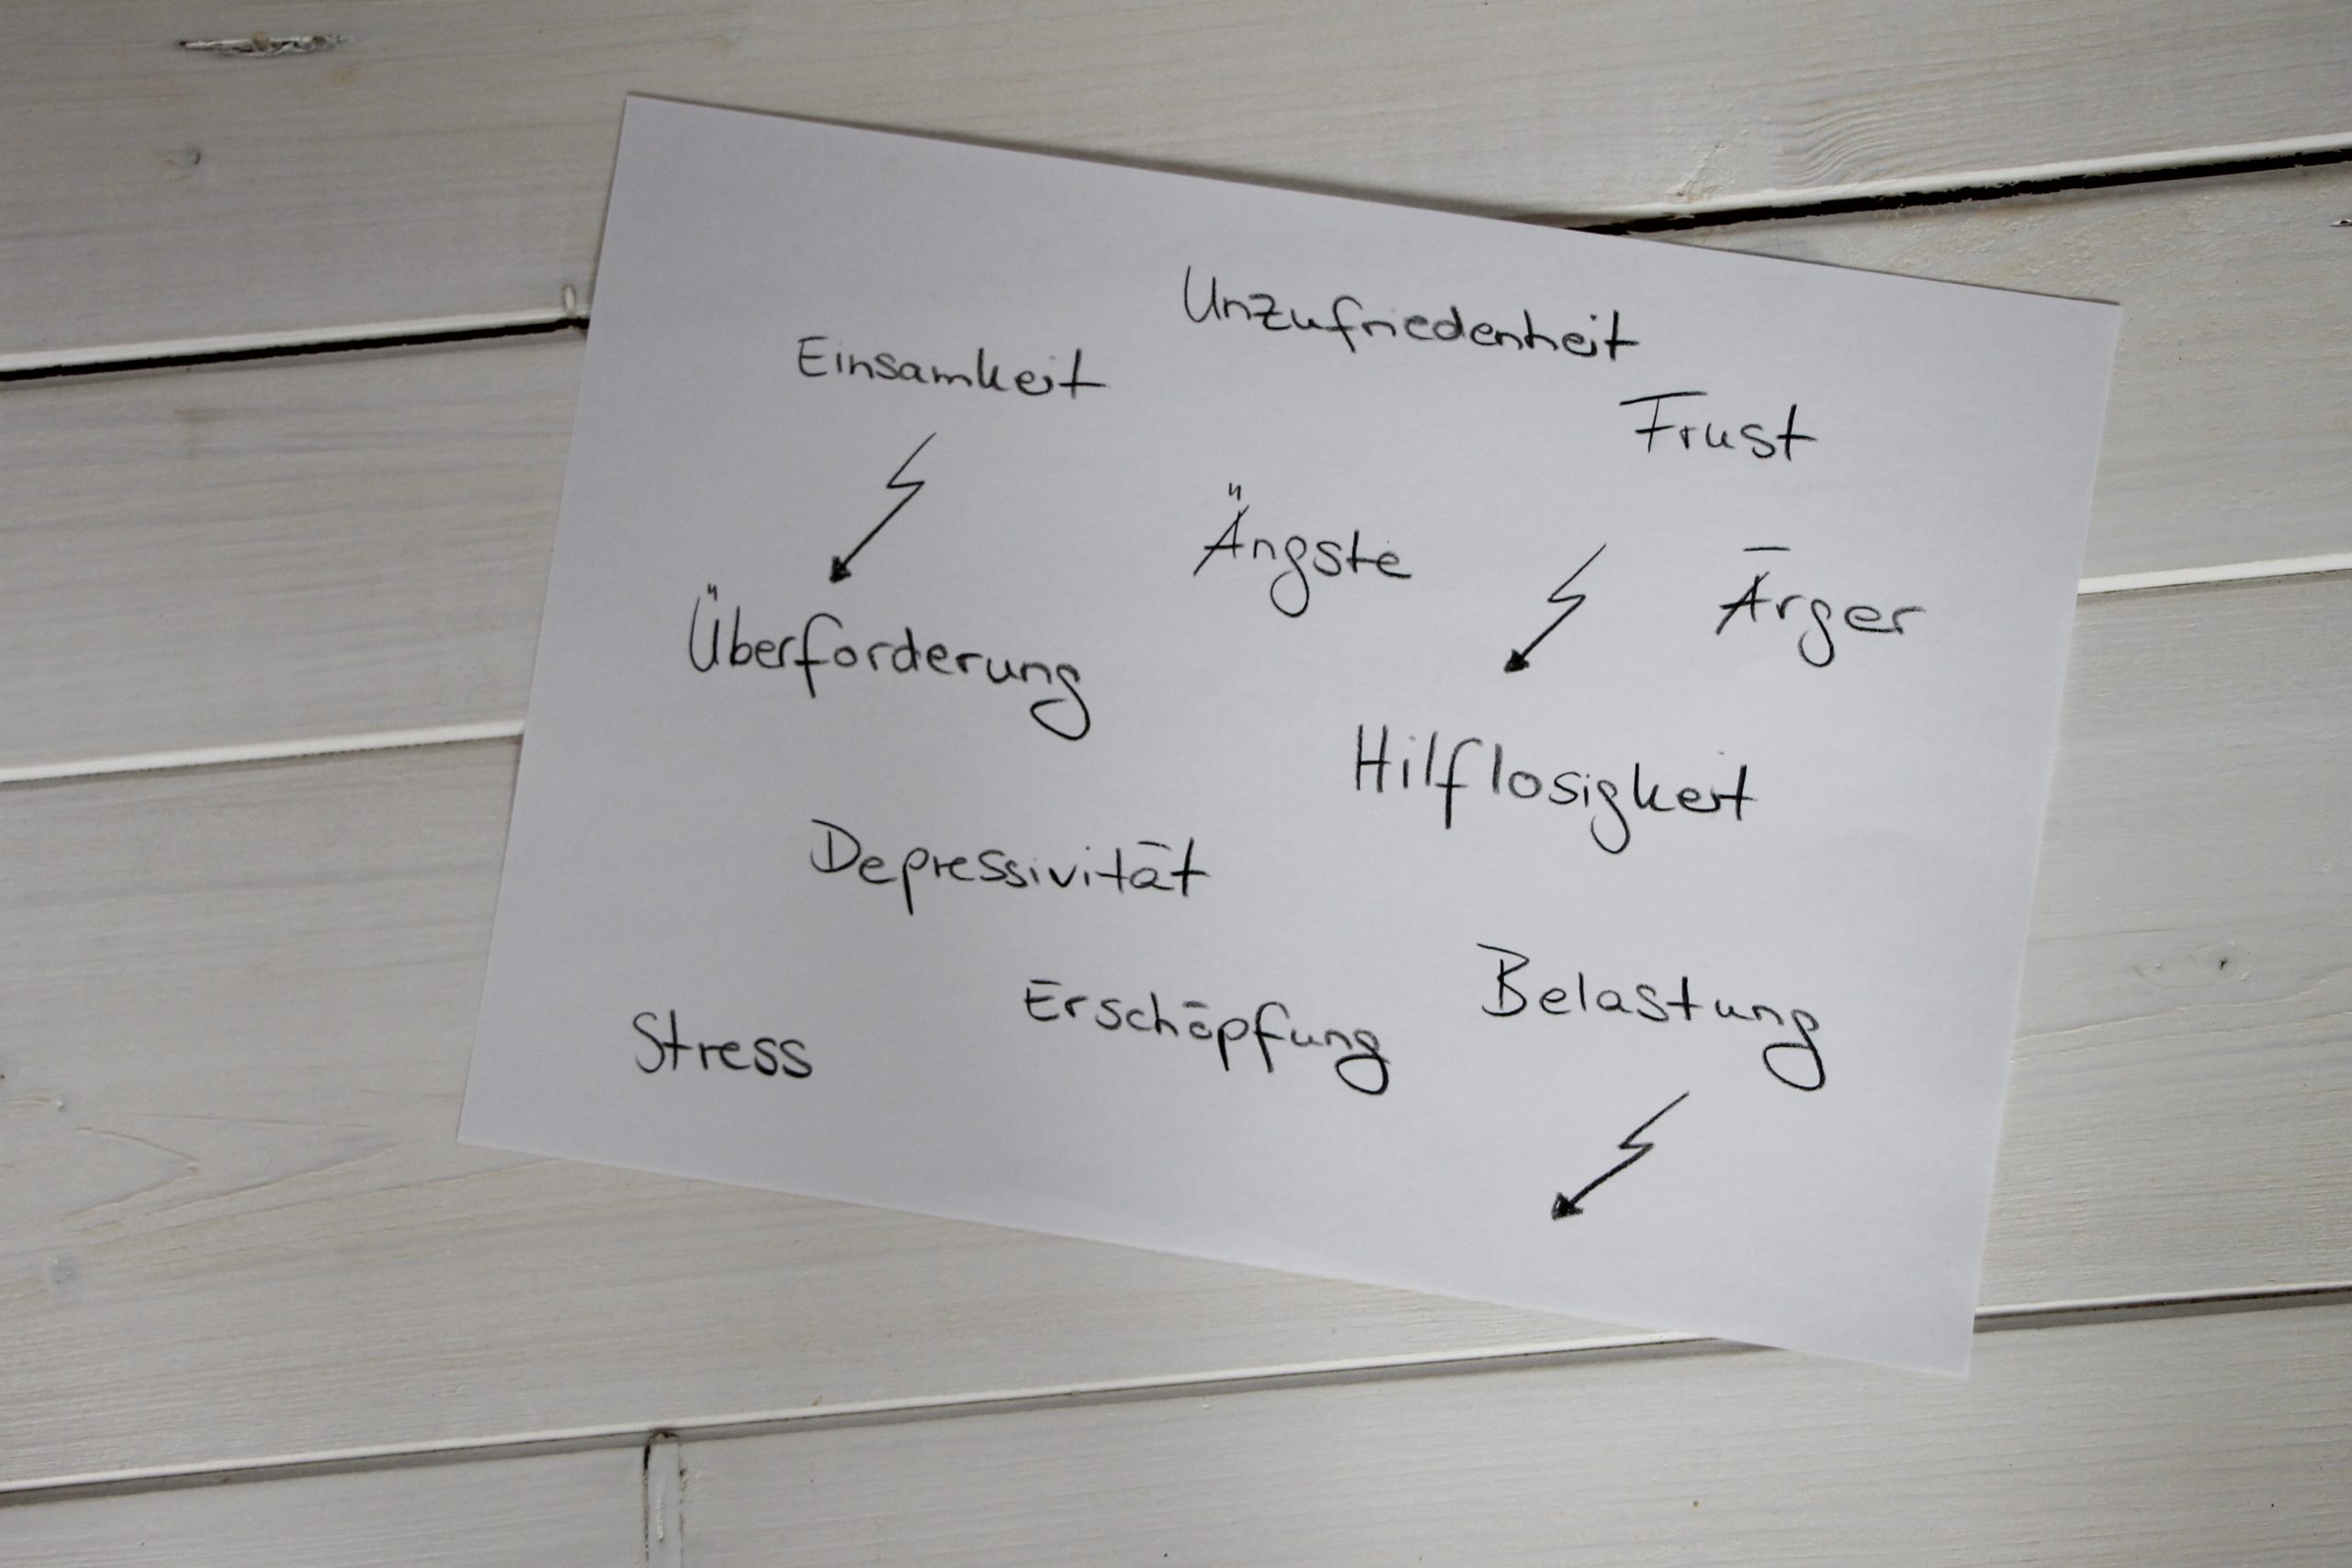 Unzufriedenheit
Einsamkeit
Frust
Ängste
Ärger
Überforderung
Hilflosigkeit
Depressivität
Belastung
Erschöpfung
Stress